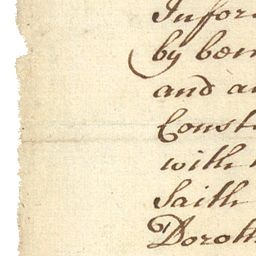 Infor
by bein
and a
Const
with
Saith
Doroth